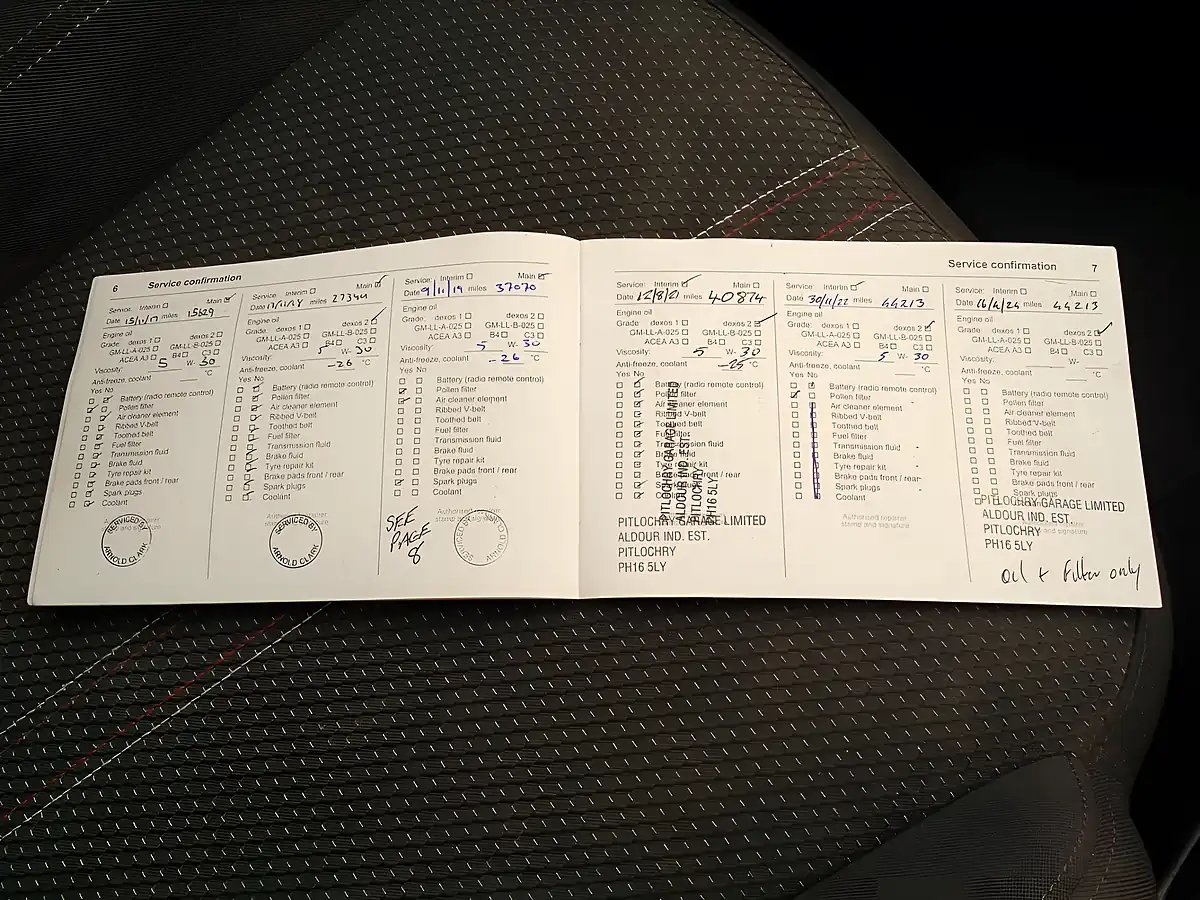 6 Service confirmation
Service: Interim Main
Date 15/11/17 miles 15629
Engine oil
Grade: dexos 1 dexos 2
GM-LL-A-025 GM-LL-B-025
ACEA A3 B4 C3
Viscosity: 5 W- 30
Anti-freeze, coolant °C
Yes No
Battery (radio remote control)
Pollen filter
Air cleaner element
Ribbed V-belt
Toothed belt
Fuel filter
Transmission fluid
Brake fluid
Tyre repair kit
Brake pads front / rear
Spark plugs
Coolant
SERVICED BY
ARNOLD CLARK
Service: Interim Main
Date miles 27344
Engine oil
Grade: dexos 1 dexos 2
GM-LL-A-025 GM-LL-B-025
ACEA A3 B4 C3
Viscosity: 5 W- 30
Anti-freeze, coolant -26 °C
Yes No
Battery (radio remote control)
Pollen filter
Air cleaner element
Ribbed V-belt
Toothed belt
Fuel filter
Transmission fluid
Brake fluid
Tyre repair kit
Brake pads front / rear
Spark plugs
Coolant
SERVICED BY
ARNOLD CLARK
Service: Interim Main
Date 9/11/19 miles 37070
Engine oil
Grade: dexos 1 dexos 2
GM-LL-A-025 GM-LL-B-025
ACEA A3 B4 C3
Viscosity: 5 W- 30
Anti-freeze, coolant -26 °C
Yes No
Battery (radio remote control)
Pollen filter
Air cleaner element
Ribbed V-belt
Toothed belt
Fuel filter
Transmission fluid
Brake fluid
Tyre repair kit
Brake pads front / rear
Spark plugs
Coolant
Authorised repairer
stamp and signature
SEE
PAGE
8
SERVICED BY
ARNOLD
Service confirmation 7
Service: Interim Main
Date 12/8/21 miles 40874
Engine oil
Grade: dexos 1 dexos 2
GM-LL-A-025 GM-LL-B-025
ACEA A3 B4 C3
Viscosity: 5 W- 30
Anti-freeze, coolant -25 °C
Yes No
Battery (radio remote control)
Pollen filter
Air cleaner element
Ribbed V-belt
Toothed belt
Fuel filter
Transmission fluid
Brake fluid
Tyre repair kit
Brake pads front / rear
Spark plugs
Coolant
PITLOCHRY GARAGE LIMITED
ALDOUR IND. EST.
PITLOCHRY
PH16 5LY
PITLOCHRY GARAGE LIMITED
ALDOUR IND. EST.
PITLOCHRY
PH16 5LY
Service: Interim Main
Date 30/11/22 miles 44213
Engine oil
Grade: dexos 1 dexos 2
GM-LL-A-025 GM-LL-B-025
ACEA A3 B4 C3
Viscosity: 5 W- 30
Anti-freeze, coolant °C
Yes No
Battery (radio remote control)
Pollen filter
Air cleaner element
Ribbed V-belt
Toothed belt
Fuel filter
Transmission fluid
Brake fluid
Tyre repair kit
Brake pads front / rear
Spark plugs
Coolant
Authorised repairer
stamp and signature
Service: Interim Main
Date 16/4/24 miles 44213
Engine oil
Grade: dexos 1 dexos 2
GM-LL-A-025 GM-LL-B-025
ACEA A3 B4 C3
Viscosity: W-
Anti-freeze, coolant °C
Yes No
Battery (radio remote control)
Pollen filter
Air cleaner element
Ribbed V-belt
Toothed belt
Fuel filter
Transmission fluid
Brake fluid
Tyre repair kit
Brake pads front / rear
Spark plugs
Coolant
PITLOCHRY GARAGE LIMITED
ALDOUR IND. EST.
PITLOCHRY
PH16 5LY
Oil + Filter only